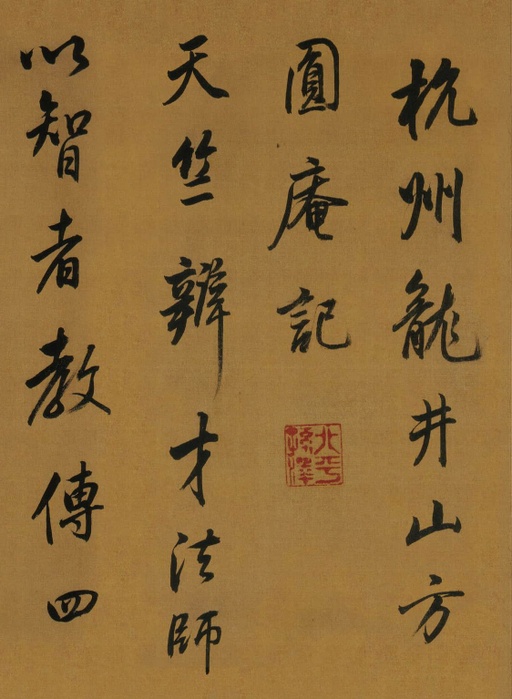 杭州龍井山方
圓庵記
北平孫澤
天竺辯才法師
以智者教傳四